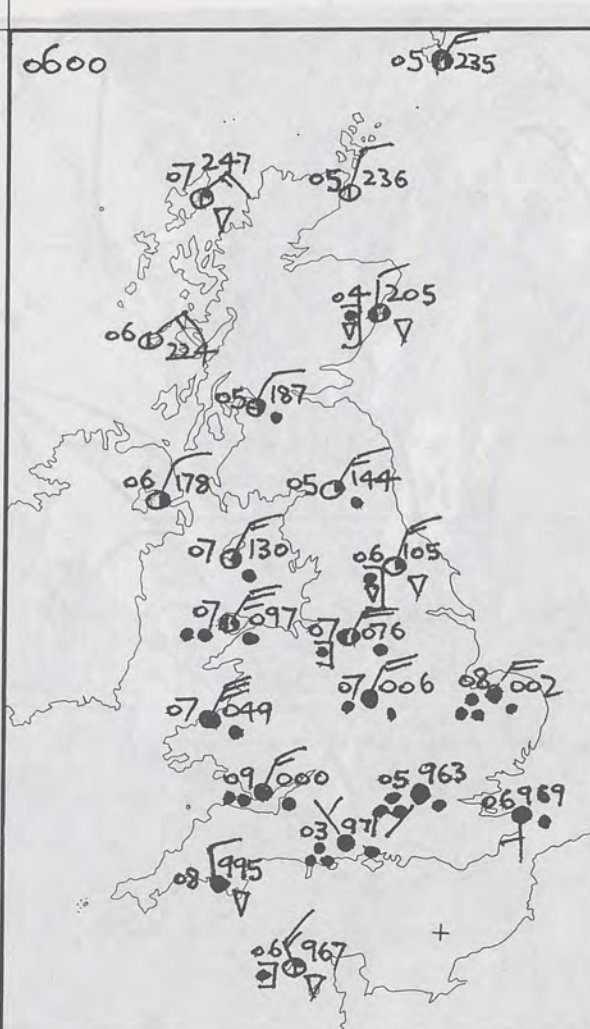 0600
05 235
07 247
05 236
04 205
06 224
05 187
06 178
05 144
07 130
06 105
07 097
07 076
07 049
07 006
08 002
09 000
05 963
06 969
03 97
08 995
06 967